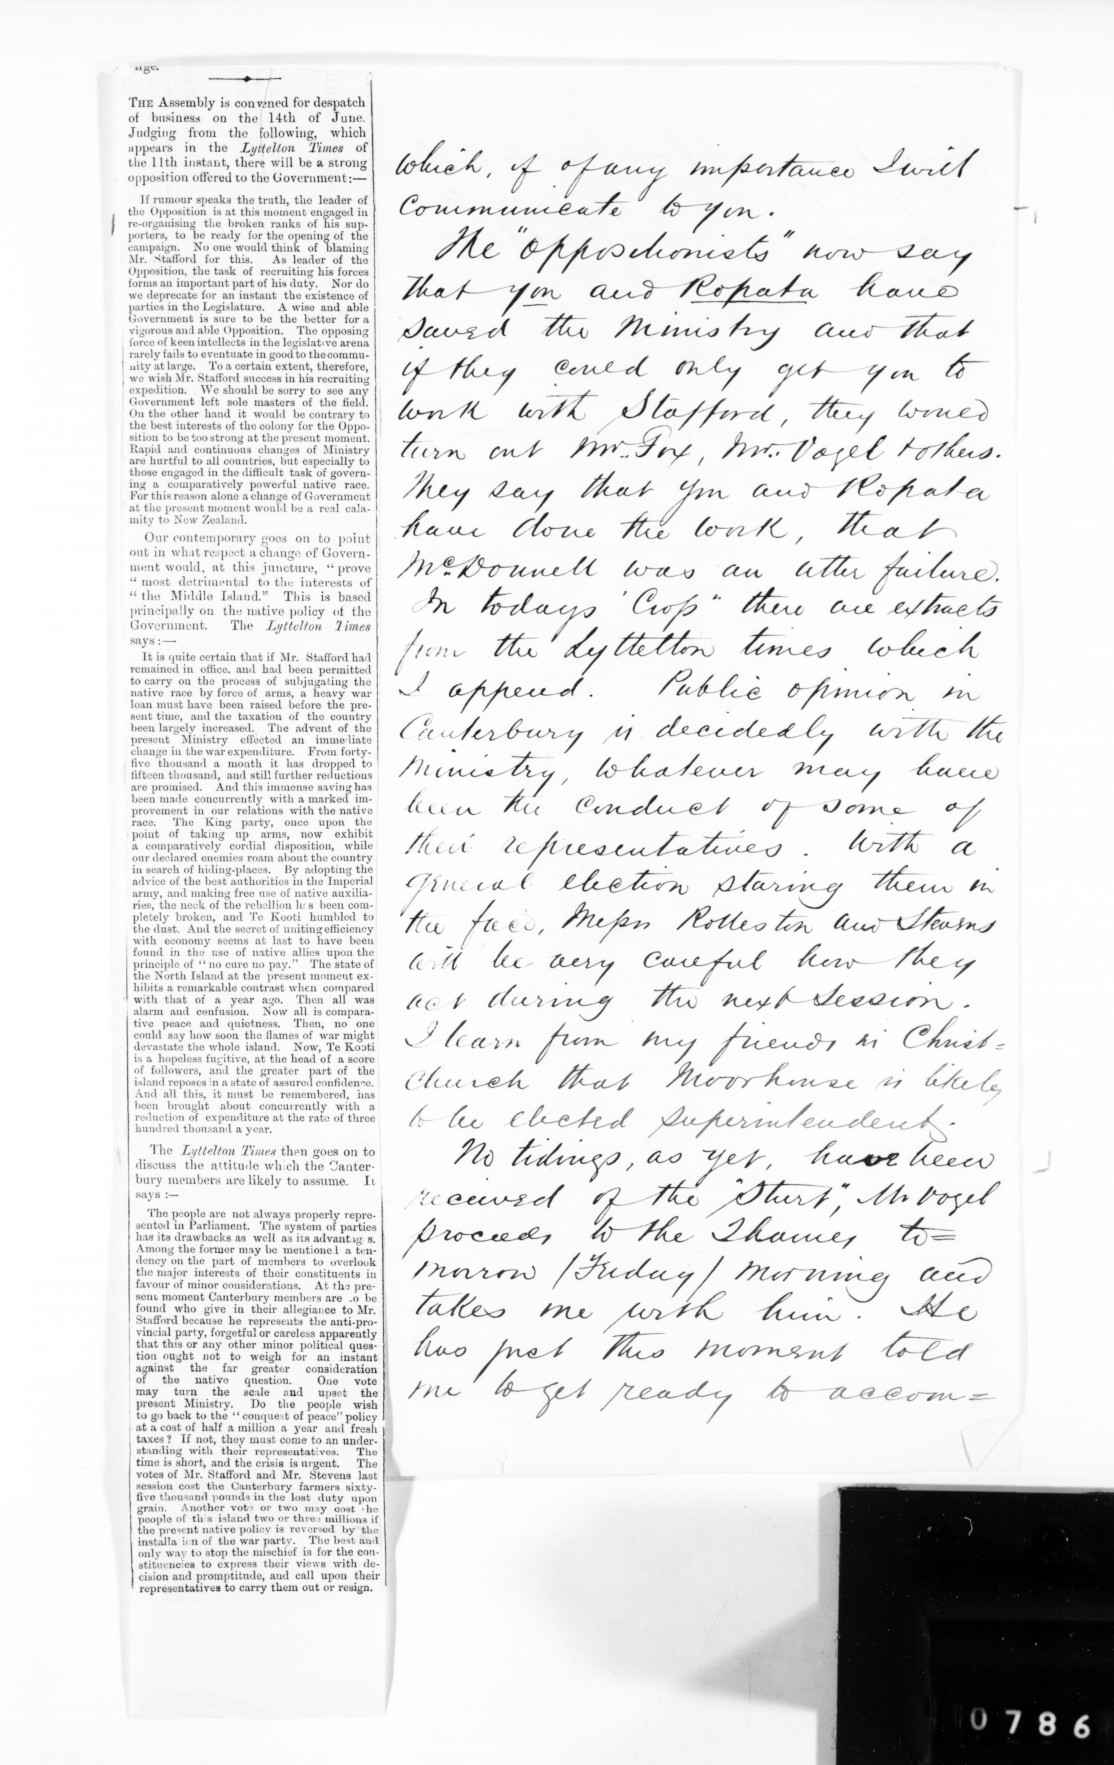 THE Assembly is convened for despatch
of business on the 14th of June.
Judging from the following, which
appears in the Lyttelton Times of
the 11th instant, there will be a strong
opposition offered to the Government:—
If rumour speaks the truth, the leader of
the Opposition is at this moment engaged in
re-organising the broken ranks of his sup-
porters, to be ready for the opening of the
campaign. No one would think of blaming
Mr. Stafford for this. As leader of the
Opposition, the task of recruiting his forces
forms an important part of his duty. Nor do
we deprecate for an instant the existence of
parties in the Legislature. A wise and able
Government is sure to be the better for a
vigorous and able Opposition. The opposing
force of keen intellects in the legislative arena
rarely fails to eventuate in good to the commu-
nity at large. To a certain extent, therefore,
we wish Mr. Stafford success in his recruiting
expedition. We should be sorry to see any
Government left sole masters of the field.
On the other hand it would be contrary to
the best interests of the colony for the Oppo-
sition to be too strong at the present moment.
Rapid and continuous changes of Ministry
are hurtful to all countries, but especially to
those engaged in the difficult task of govern-
ing a comparatively powerful native race.
For this reason alone a change of Government
at the present moment would be a real cala-
mity to New Zealand.
Our contemporary goes on to point
out in what respect a change of Govern-
ment would, at this juncture, "prove
"most detrimental to the interests of
"the Middle Island." This is based
principally on the native policy of the
Government. The Lyttelton Times
says:—
It is quite certain that if Mr. Stafford had
remained in office, and had been permitted
to carry on the process of subjugating the
native race by force of arms, a heavy war
loan must have been raised before the pre-
sent time, and the taxation of the country
been largely increased. The advent of the
present Ministry effected an immediate
change in the war expenditure. From forty-
five thousand a month it has dropped to
fifteen thousand, and still further reductions
are promised. And this immense saving has
been made concurrently with a marked im-
provement in our relations with the native
race. The King party, once upon the
point of taking up arms, now exhibit
a comparatively cordial disposition, while
our declared enemies roam about the country
in search of hiding-places. By adopting the
advice of the best authorities in the Imperial
army, and making free use of native auxilia-
ries, the neck of the rebellion has been com-
pletely broken, and Te Kooti humbled to
the dust. And the secret of uniting efficiency
with economy seems at last to have been
found in the use of native allies upon the
principle of "no cure no pay." The state of
the North Island at the present moment ex-
hibits a remarkable contrast when compared
with that of a year ago. Then all was
alarm and confusion. Now all is compara-
tive peace and quietness. Then, no one
could say how soon the flames of war might
devastate the whole island. Now, Te Kooti
is a hopeless fugitive, at the head of a score
of followers, and the greater part of the
island reposes in a state of assured confidence.
And all this, it must be remembered, has
been brought about concurrently with a
reduction of expenditure at the rate of three
hundred thousand a year.
The Lyttelton Times then goes on to
discuss the attitude which the Canter-
bury members are likely to assume. It
says:—
The people are not always properly repre-
sented in Parliament. The system of parties
has its drawbacks as well as its advantag s.
Among the former may be mentioned a ten-
dency on the part of members to overlook
the major interests of their constituents in
favour of minor considerations. At the pre-
sent moment Canterbury members are to be
found who give in their allegiance to Mr.
Stafford because he represents the anti-pro-
vincial party, forgetful or careless apparently
that this or any other minor political ques-
tion ought not to weigh for an instant
against the far greater consideration
of the native question. One vote
may turn the scale and upset the
present Ministry. Do the people wish
to go back to the "conquest of peace" policy
at a cost of half a million a year and fresh
taxes? If not, they must come to an under-
standing with their representatives. The
time is short, and the crisis is urgent. The
votes of Mr. Stafford and Mr. Stevens last
session cost the Canterbury farmers sixty-
five thousand pounds in the lost duty upon
grain. Another vote or two may cost the
people of this island two or three millions if
the present native policy is reversed by the
installa ion of the war party. The best and
only way to stop the mischief is for the con-
stituencies to express their views with de-
cision and promptitude, and call upon their
representatives to carry them out or resign.
which, if of any importance I will
communicate to you.
The "oppositionists" now say
that you and Ropata have
saved the Ministry and that
if they could only get you to
work with Stafford, they would
turn out Mr. Fox, Mr. Vogel & others.
They say that you and Ropata
have done the work, that
McDonnell was an utter failure.
In todays 'Cross" there are extracts
from the Lyttelton times which
I append. Public opinion in
Canterbury is decidedly with the
Ministry, whatever may have
been the conduct of some of
their representatives. With a
general election staring them in
the face, Messrs Rolleston and Stevens
will be very careful how they
act during the next session.
I learn from my friends in Christ=
church that Moorhouse is likely
to be elected Superintendent.
No tidings, as yet, have been
received of the "Sturt", Mr Vogel
proceeds to the Thames to=
morrow (Friday) morning and
takes me with him. He
has just this moment told
me to get ready to accom=
0786